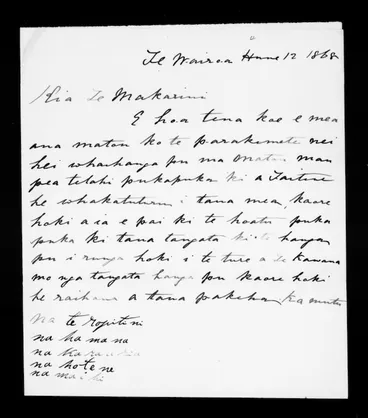 Te Wairoa Hune 12 1868
Kia Te Makarini
E hoa tena koe e mea
ana matou ko te parakimete nei
hei whaihanga pu ma matou mau
pea tetahi pukapuka ki a
he whakaatu i tana mea kaore
hoki aia e pai ki te hoatu puka
puka ki tana tangata ki te hanga
pu i runga hoki i te ture a te Kawana
mo nga tangata hanga pu kaore hoki
he raihana a tana pakeha ka mutu
na te ropitini
na hamana
na
na hotene
na